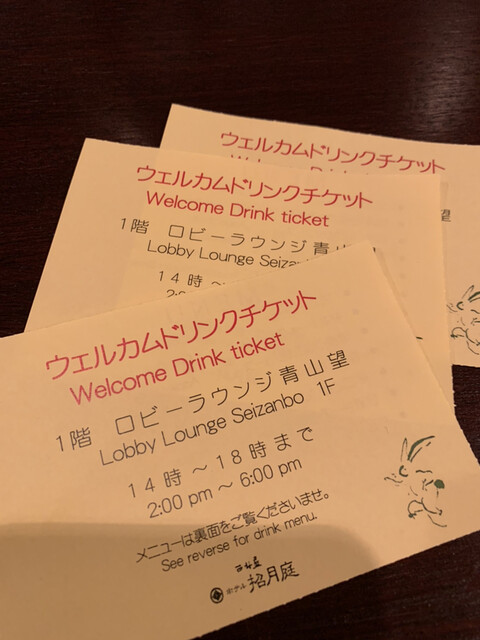 ウェルカムドリンクチケット
Welcome Drink
ウェルカムドリンクチケット
Welcome Drink ticket
1階 ロビーラウンジ青山
Lobby Lounge
14時～
望
ウェルカムドリンクチケット
Welcome Drink ticket
1階 ロビーラウンジ青山望
Lobby Lounge Seizanbo 1F
14時～18時まで
2:00 pm～6:00 pm
メニューは裏面をご覧くださいませ。
See reverse for drink menu.
西村屋
ホテル 招月庭